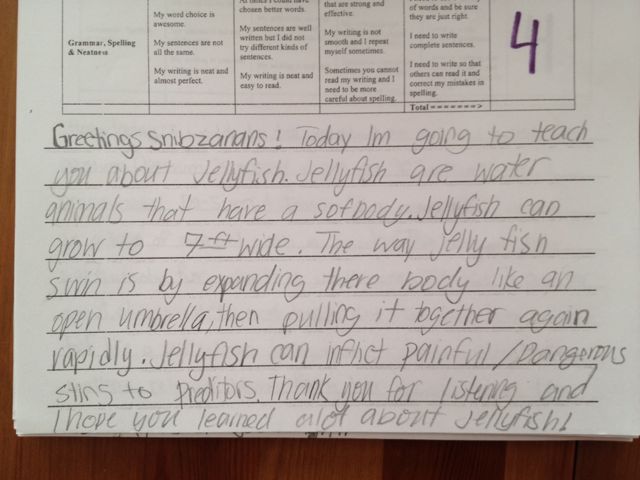 chosen better words.
that are strong and
of words and be sure
My word choice is
effective.
they are just right.
awesome.
My sentences are well
written but I did not
My writing is not
I need to write
My sentences are not
try different kinds of
smooth and I repeat
complete sentences.
Grammar, Spelling
all the same.
sentences.
myself sometimes.
& Neatness
I need to write so that
My writing is neat and
My writing is neat and
Sometimes you cannot
others can read it and
almost perfect.
easy to read.
read my writing and I
correct my mistakes in
need to be more
spelling.
careful about spelling.
Total ------->
4
Greetings Snibzanans! Today Im going to teach
you about Jellyfish. Jellyfish are water
animals that have a sofbody. Jellyfish can
grow to 7 ft wide. The way jelly fish
swin is by expanding there body like an
open umbrella, then pulling it together again
rapidly. Jellyfish can inflict painful / Dangerous
stins to Preditors. Thank you for listening and
I hope you learned alot about Jellyfish!